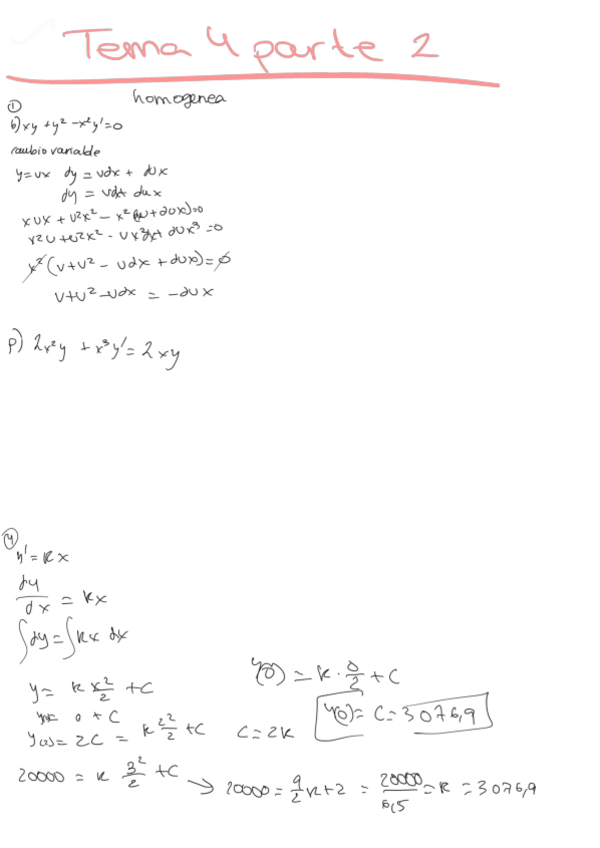 Tema 4 parte 2
homogenea
①
b) xy + y² - x²y' = 0
cambio variable
y = vx dy = vdx + dvx
dy = vdx dvx
xvx + v²x² - x²(v + dvx) = 0
x²v + v²x² - vx²dx + dvx³ = 0
x²(v + v² - vdx + dvx) = 0
v + v² - vdx = -dvx
p) 2x²y + x³y' = 2xy
④
y' = kx
dy/dx = kx
∫dy = ∫kx dx
y = k x²/2 + C
y(0) = k · 0/2 + C
0 + C
y(0) = C = 3076,9
y(2) = 2C = k 2²/2 + C C = 2k
20000 = k 3²/2 + C
→ 20000 = 9/2 k + 2 = 20000/6,5 = k = 3076,9